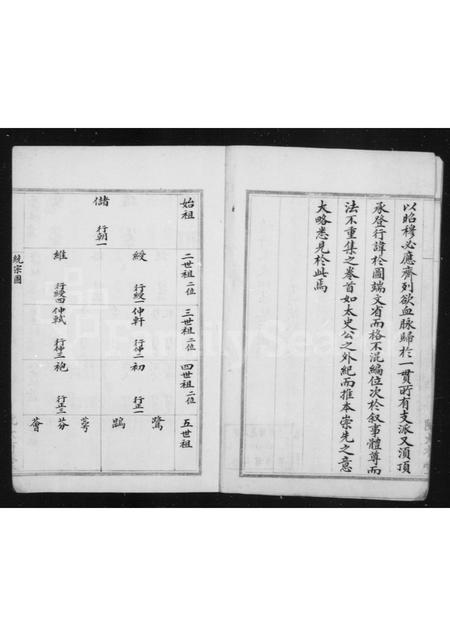 以昭穆必應齊列欲血脉歸於一貫所有支派又湏頂
承登行諱於圖端文省而格不混編位次於叙事體尊而
法不重集之卷首如太史公之外紀而推本崇先之意
大略悉見於此焉
始祖 二世祖二位 三世祖二位 四世祖二位 五世祖
綬 行綬一 仲軒 行仲二 初 行正一 鷟
鵰
儲 行朝一
維 行綬四 仲軾 行仲三 袍 行正三 芬
薈
統宗圖